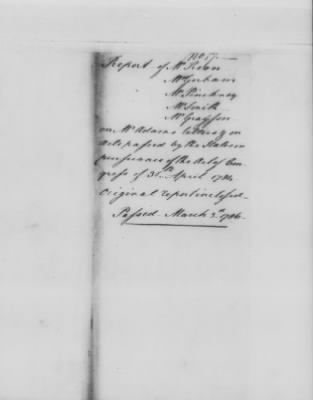 No. 57.
Report of Mr Kean
Mr Gorham
Mr Pinckney
Mr Smith
Mr Grayson
on Mr Adams letters & on
acts passed by the States in
pursuance of the act of Con
gress of 30th April 1784
Original report inclosed
Passed March 3d 1786